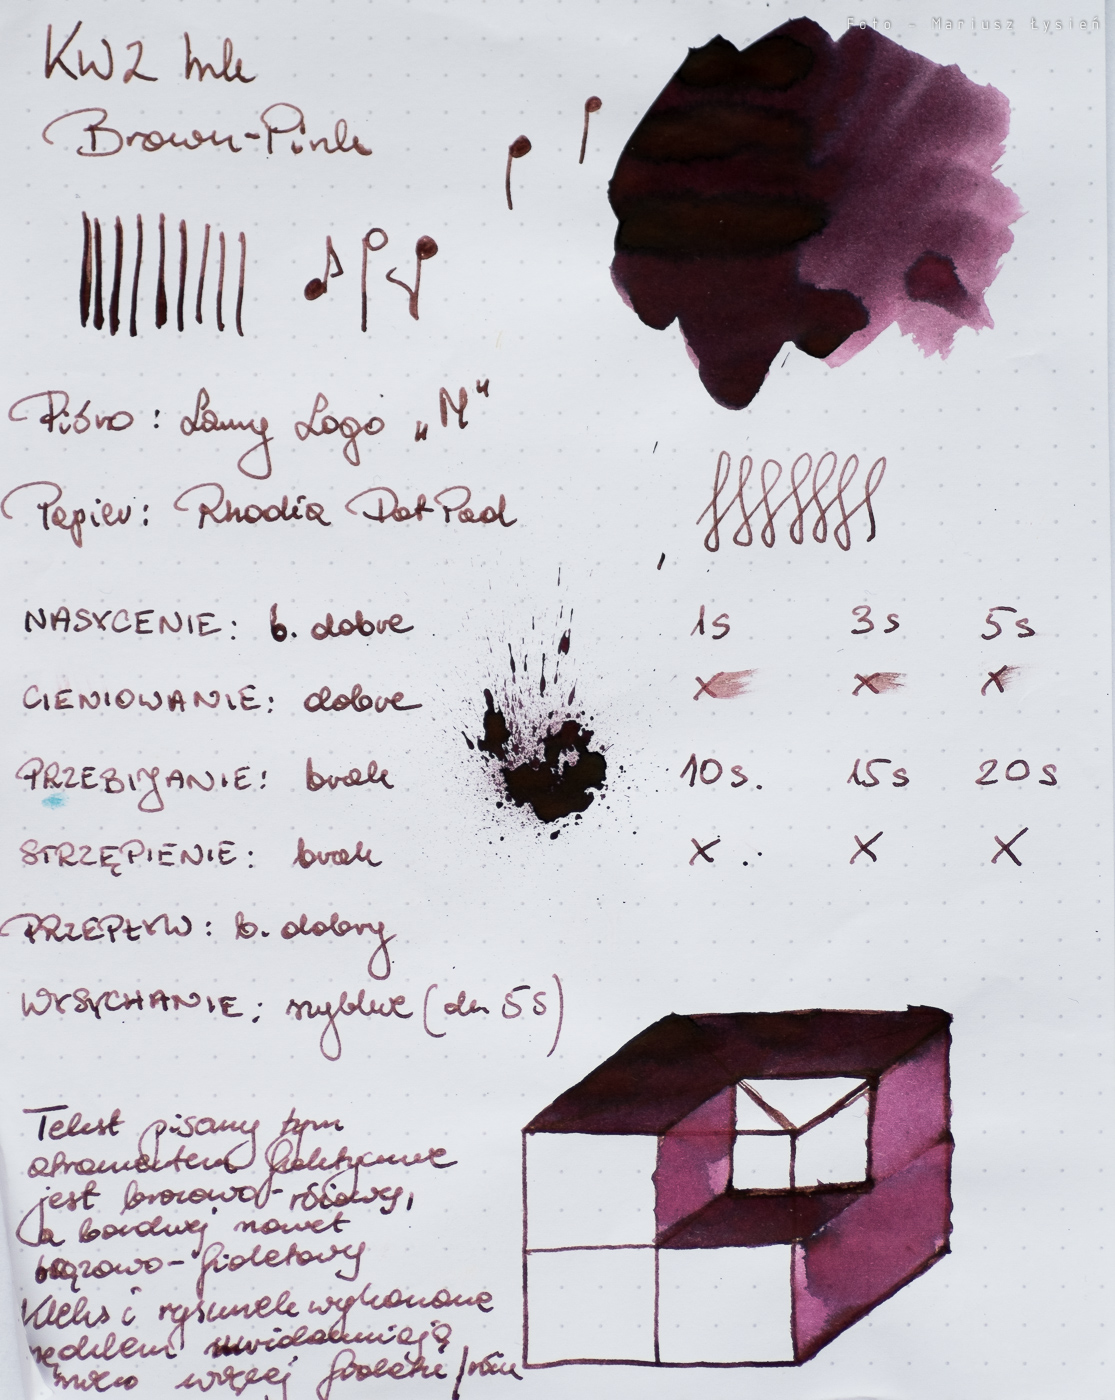 Foto - Mariusz Łysień
KWZ Ink
Brown-Pink
Pióro: Lamy Logo „M"
Papier: Rhodia DotPad
NASYCENIE: b. dobre
1s 3s 5s
x x x
CIENIOWANIE: dobre
PRZEBIJANIE: brak
10s. 15s 20s
STRZĘPIENIE: brak
x x x
PRZEPŁYW: b. dobry
WYSYCHANIE: szybkie (do 5s)
Tekst pisany tym
atramentem faktycznie
jest brązowo-różowy,
a bardziej nawet
brązowo-fioletowy
Kleks i rysunek wykonane
pędzlem uwidaczniają
więcej fioletu/różu